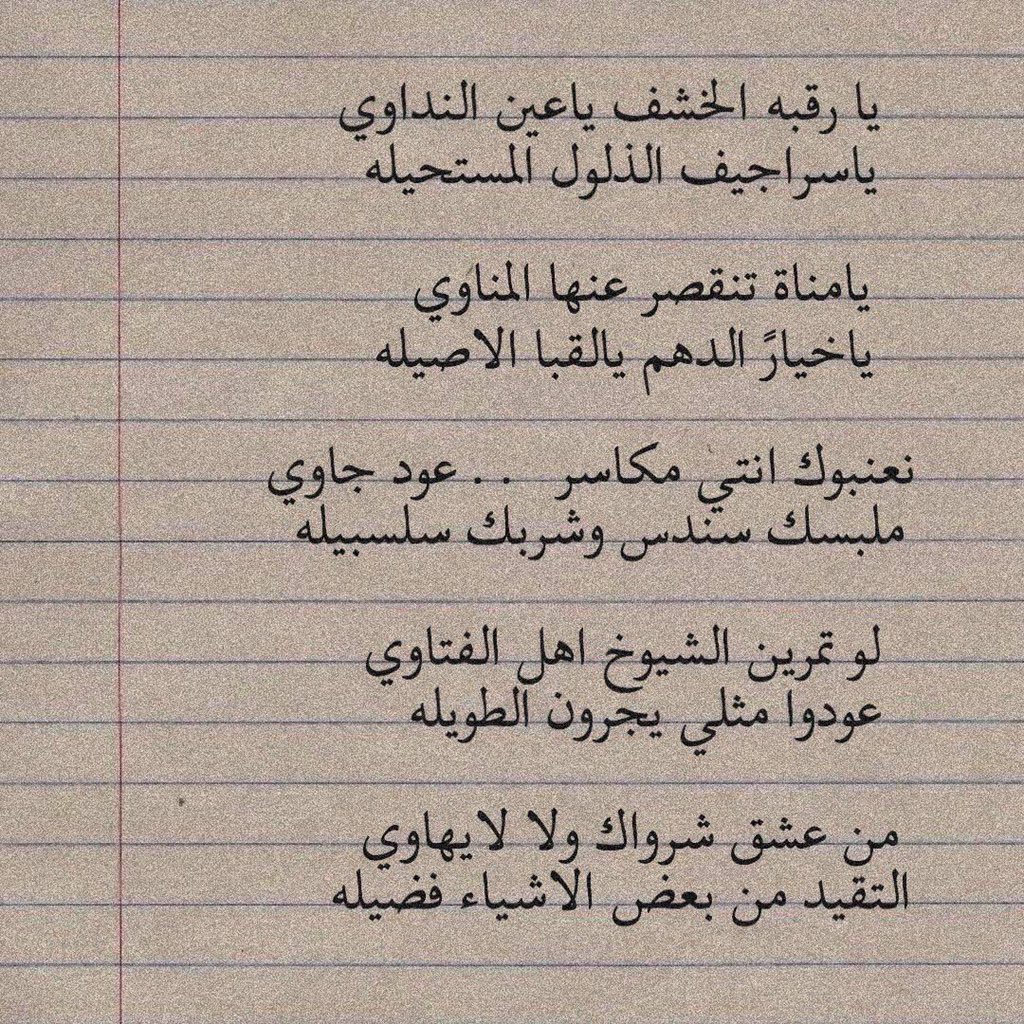 يا رقبه الخشف ياعين النداوي
ياسراجيف الذلول المستحيله
يامناة تنقصر عنها المناوي
ياخيارً الدهم يالقبا الاصيله
نعنبوك انتي مكاسر . . عود جاوي
ملبسك سندس وشربك سلسبيله
لو تمرين الشيوخ اهل الفتاوي
عودوا مثلي يجرون الطويله
من عشق شرواك ولا لايهاوي
التقيد من بعض الاشياء فضيله